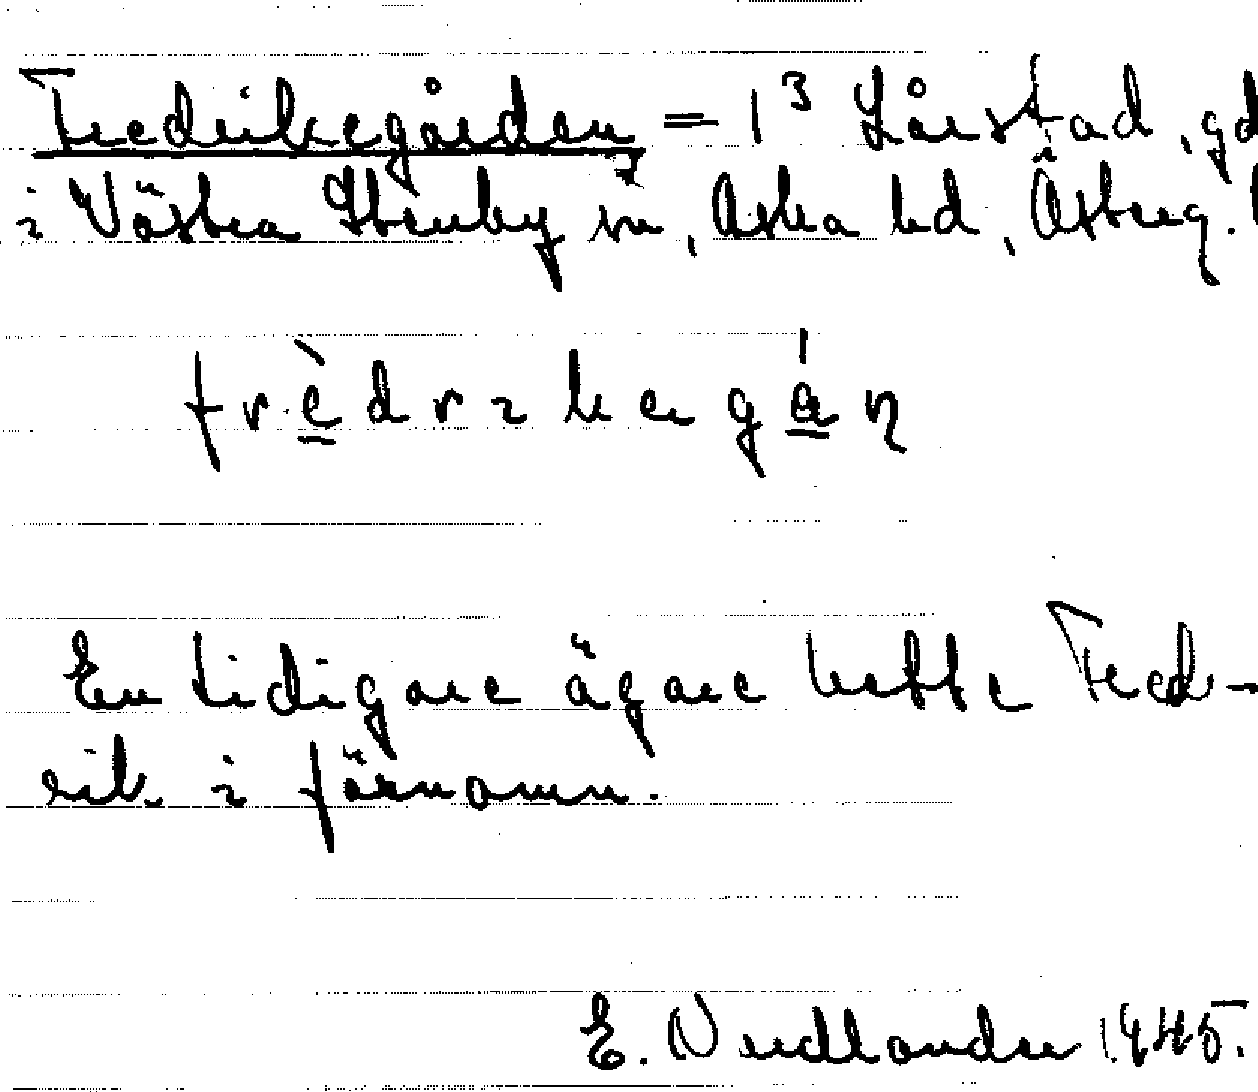 Fredrikegården = 1³ Lårstad, gd
i Västra Stenby sn, Aska hd, Österg. l
frèdrikagán
En tidigare ägare hette Fred-
rik i förnamn.
E. Nordlander 1945.